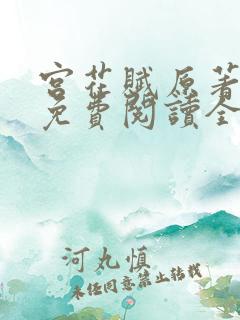 宮花賦原著
免費閱讀全
河丸慎
未經同意禁止轉載